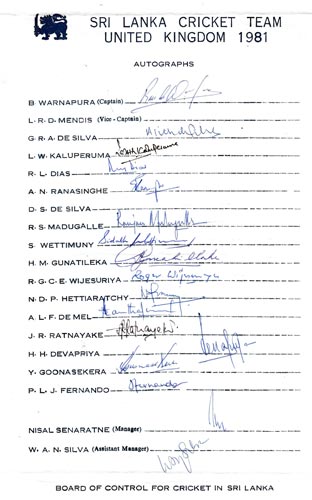 SRI LANKA CRICKET TEAM
UNITED KINGDOM 1981
AUTOGRAPHS
B. WARNAPURA (Captain)
L. R. D. MENDIS (Vice - Captain)
G. R. A. DE SILVA
L. W. KALUPERUMA
R. L. DIAS
A. N. RANASINGHE
D. S. DE SILVA
R. S. MADUGALLE Ranjan Madugalle
S. WETTIMUNY
H. M. GUNATILEKA
R. G. C. E. WIJESURIYA Roger Wijesuriya
N. D. P. HETTIARATCHY
A. L. F. DE MEL
J. R. RATNAYAKE
H. H. DEVAPRIYA
Y. GOONASEKERA
P. L. J. FERNANDO
NISAL SENARATNE (Manager)
W. A. N. SILVA (Assistant Manager)
BOARD OF CONTROL FOR CRICKET IN SRI LANKA